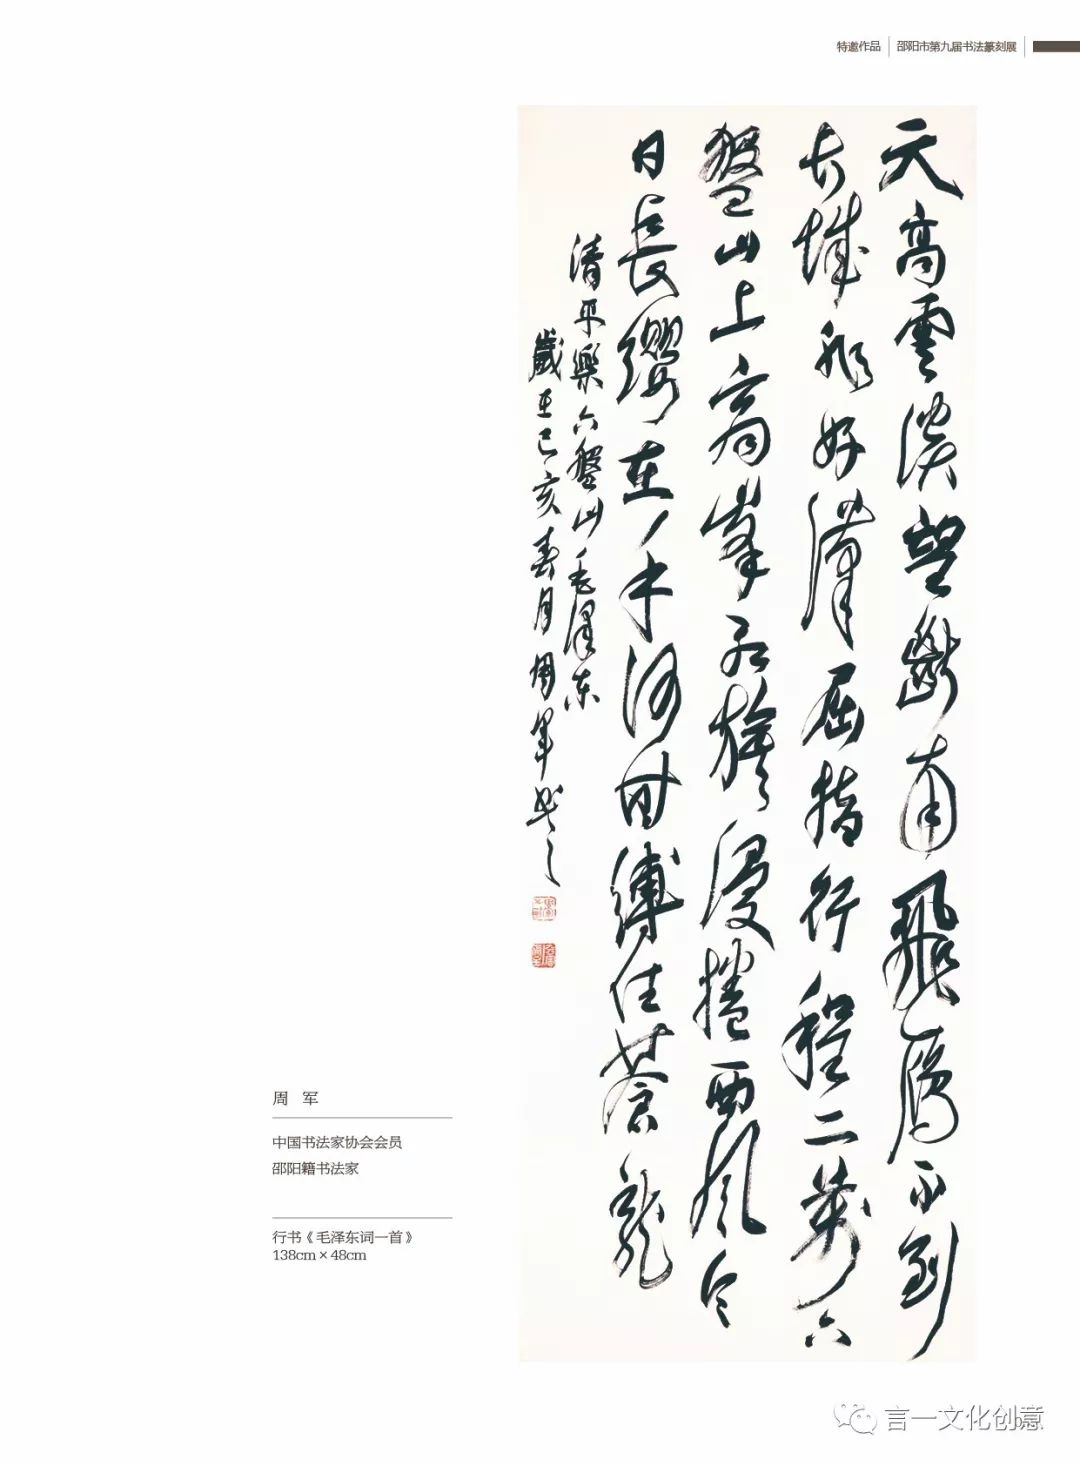 特邀作品 | 邵阳市第九届书法篆刻展
天高雲淡望斷南飛雁不到
长城非好漢屈指行程二萬六
盤山上高峯红旗漫捲西風今
日長纓在手何时縛住蒼龍
清平樂六盤山毛澤东
歲在己亥春月周軍书之
周 军
中国书法家协会会员
邵阳籍书法家
行书《毛泽东词一首》
138cm×48cm
言一文化创意